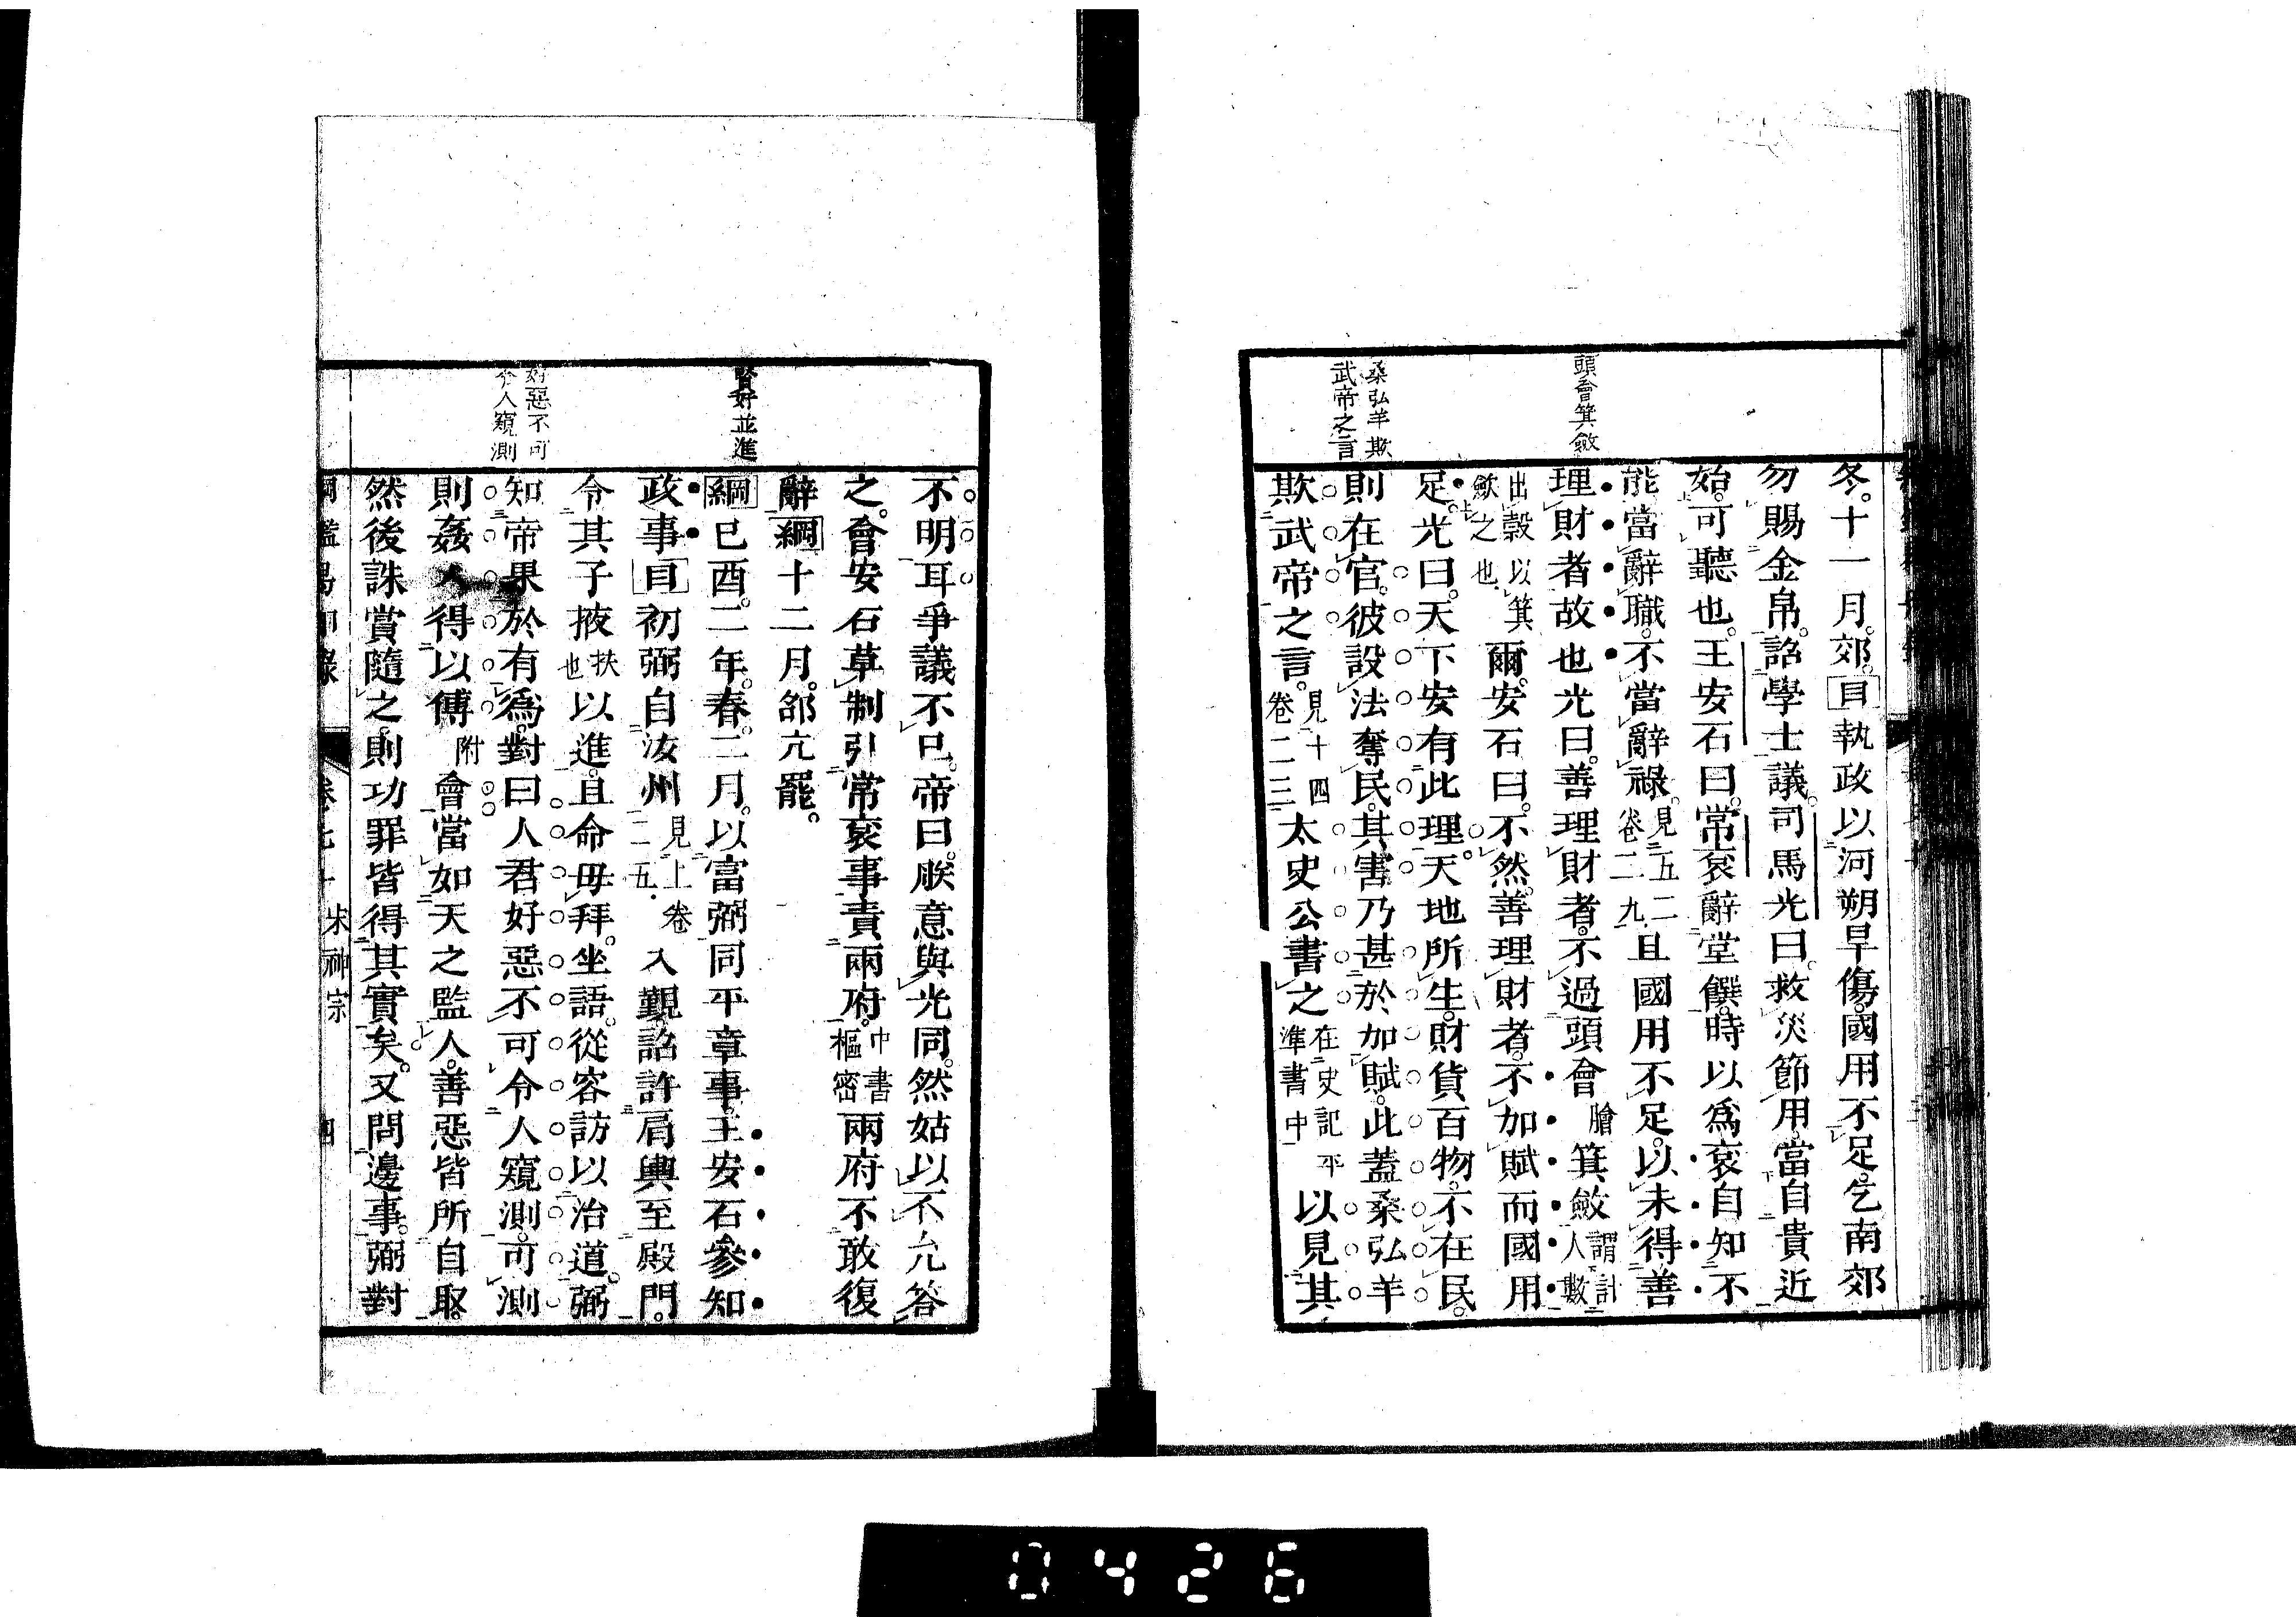 頭會箕斂
桑弘羊欺
武帝之言
冬。十一月。郊。目執政以河朔旱傷。國用不足。乞南郊
勿賜金帛。詔學士議。司馬光曰。救災節用。當自貴近
始。可聽也。王安石曰。常袞辭堂饌。時以爲袞自知不
能當辭職。不當辭祿。見五二卷二九且國用不足。以未得善
理財者故也光曰。善理財者。不過頭會膾箕斂謂計人數
出穀以箕斂之也爾。安石曰。不然。善理財者。不加賦而國用
足。光曰。天下安有此理。天地所生。財貨百物。不在民。
則在官。彼設法奪民。其害乃甚於加賦。此蓋桑弘羊
欺武帝之言。見十四卷二三太史公書之在史記平準書中以見其
賢奸並進
好惡不可
令人窺測
不明耳爭議不已。帝曰。朕意與光同。然姑以不允答
之。會安石草制引常袞事責兩府。中書樞密兩府不敢復
辭綱十二月。郃亢罷。
綱己酉。二年。春。二月。以富弼同平章事王安石參知
政事目初弼自汝州見上卷二五入覲。詔許肩輿至殿門。
令其子掖扶也以進。且命毋拜。坐語。從容訪以治道。弼
知帝果於有爲。對曰人君好惡不可令人窺測。可測
則姦人得以傅附會當如天之監人。善惡皆所自取。
然後誅賞隨之。則功罪皆得其實矣。又問邊事。弼對
宋神宗
0426